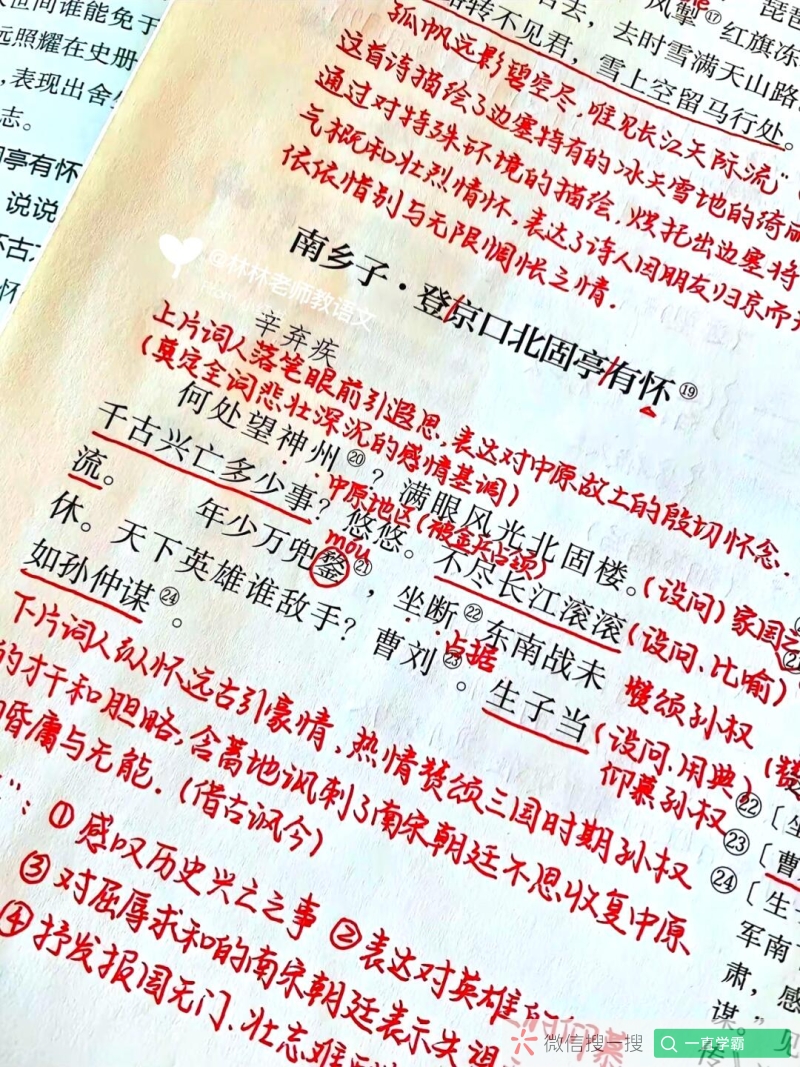 世间谁能免于
远照耀在史册
，表现出舍
志。
亭有怀
说说
怀
去，去时雪满天山路
风掣⑰ 红旗冻
转不见君，雪上空留马行处。
孤帆远影碧空尽，唯见长江天际流”
这首诗描绘了边塞特有的冰天雪地的绮丽
通过对特殊环境的描绘，烘托出边塞将
气概和壮烈情怀，表达了诗人因朋友归京而
依依惜别与无限惆怅之情.
@林林老师教语文
南乡子·登京口北固亭有怀⑲
辛弃疾
上片词人落笔眼前引遐思，表达对中原故土的殷切怀念.
(奠定全词悲壮深沉的感情基调)
何处望神州⑳？满眼风光北固楼。(设问)家国
中原地区(被金兵占领)
千古兴亡多少事？悠悠。不尽长江滚滚(设问.比喻)
流。
mou
年少万兜鍪㉑，坐断㉒东南战未
占据
赞颂孙权
休。天下英雄谁敌手？曹刘㉓。生子当(设问.用典)
仰慕孙权
如孙仲谋㉔。
下片词人纵怀远古引豪情，热情赞颂三国时期孙权
的才干和胆略，含蓄地讽刺了南宋朝廷不思收复中原
昏庸与无能.(借古讽今)
①感叹历史兴亡之事 ②表达对英雄
③对屈辱求和的南宋朝廷表示失望
④抒发报国无门、壮志难
㉒〔坐
㉓〔曹
㉔〔生
军南
肃，感
谋。”见
微信搜一搜
一直学霸